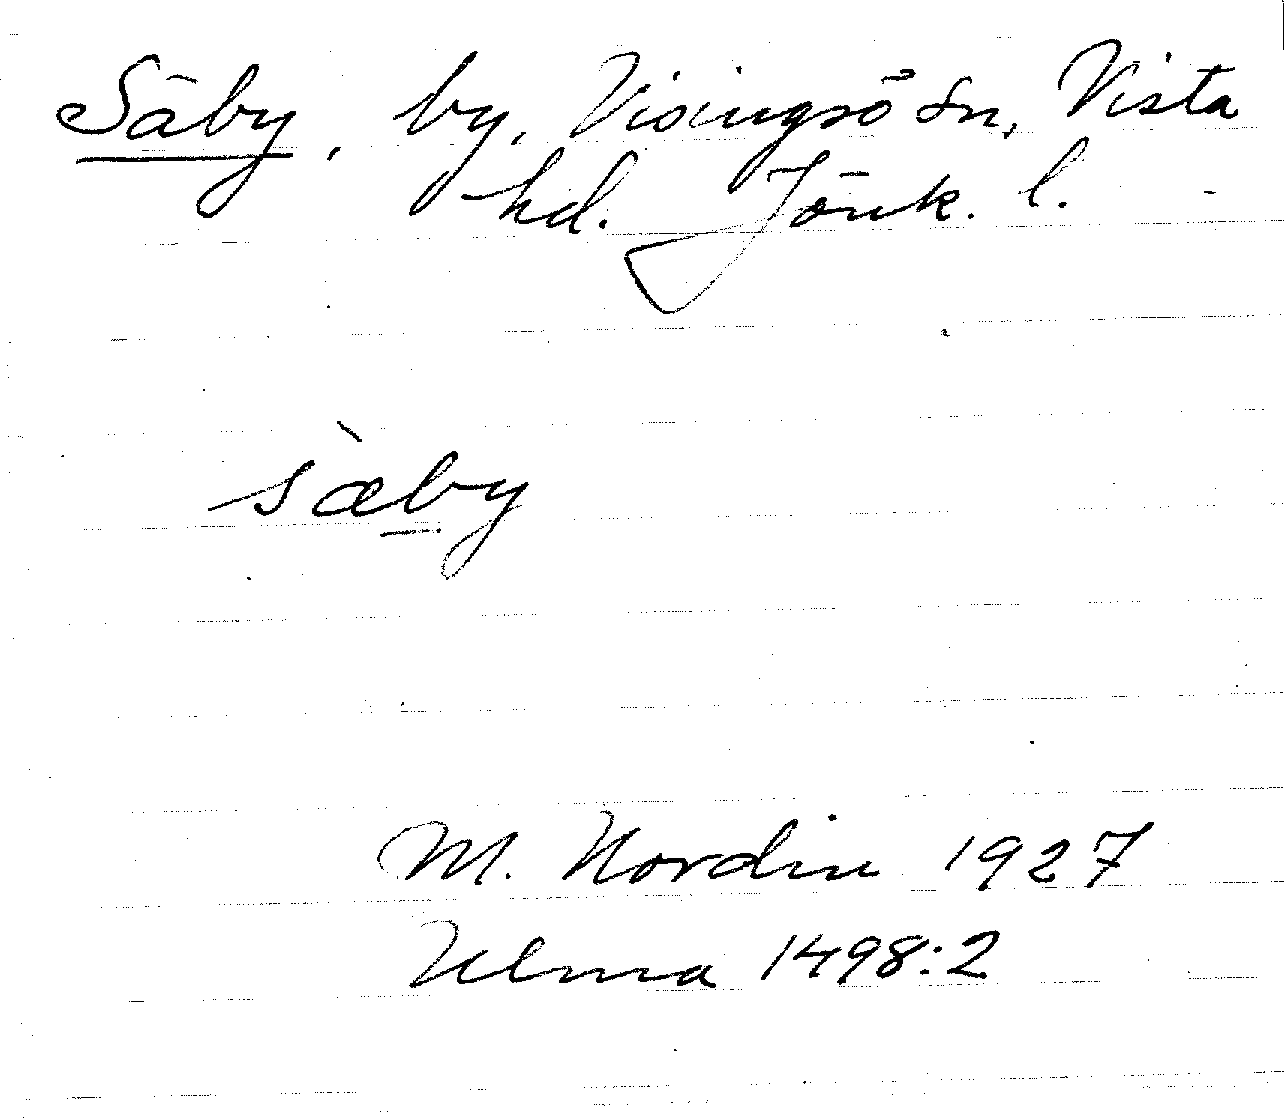 Säby, by, Visingsö sn, Vista
hd. Jönk. l.
sæ̀by
M. Nordin 1927
Ulma 1498:2